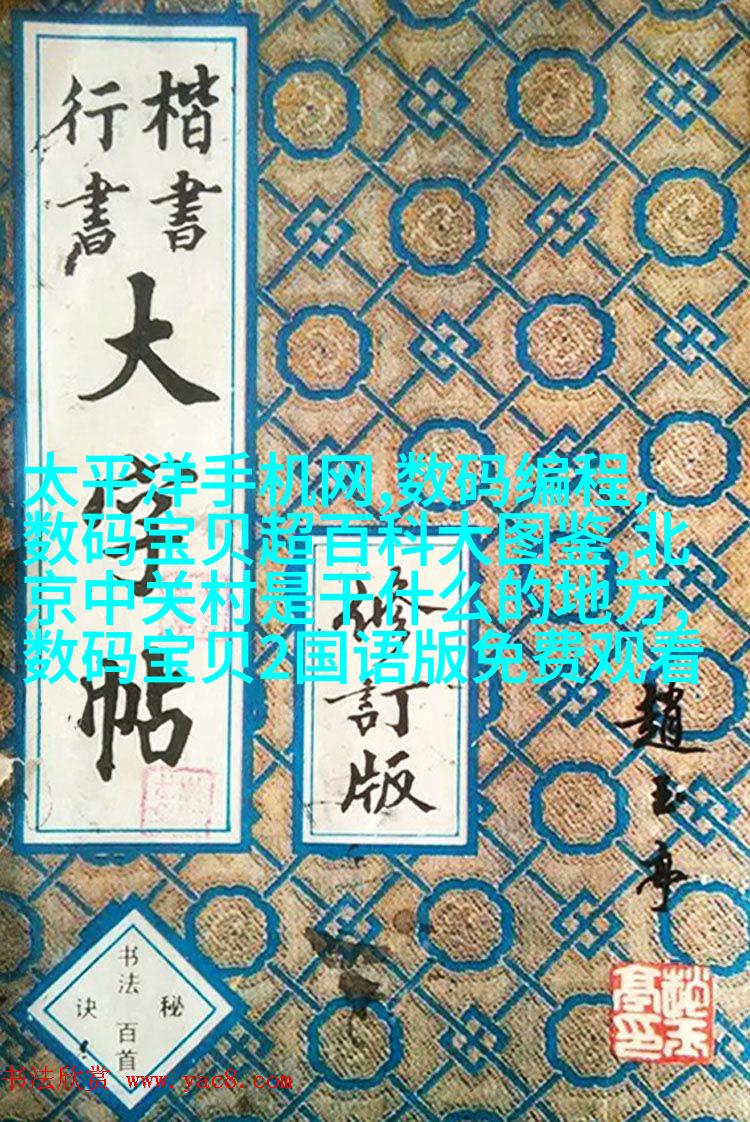 楷書
行書
大字帖
太平洋手机网,数码编程,
数码宝贝超百科大图鉴,北
京中关村是干什么的地方,
数码宝贝2国语版免费观看
修訂版
趙玉亭
书法
百首
秘
诀
书法欣赏 www.yac8.com